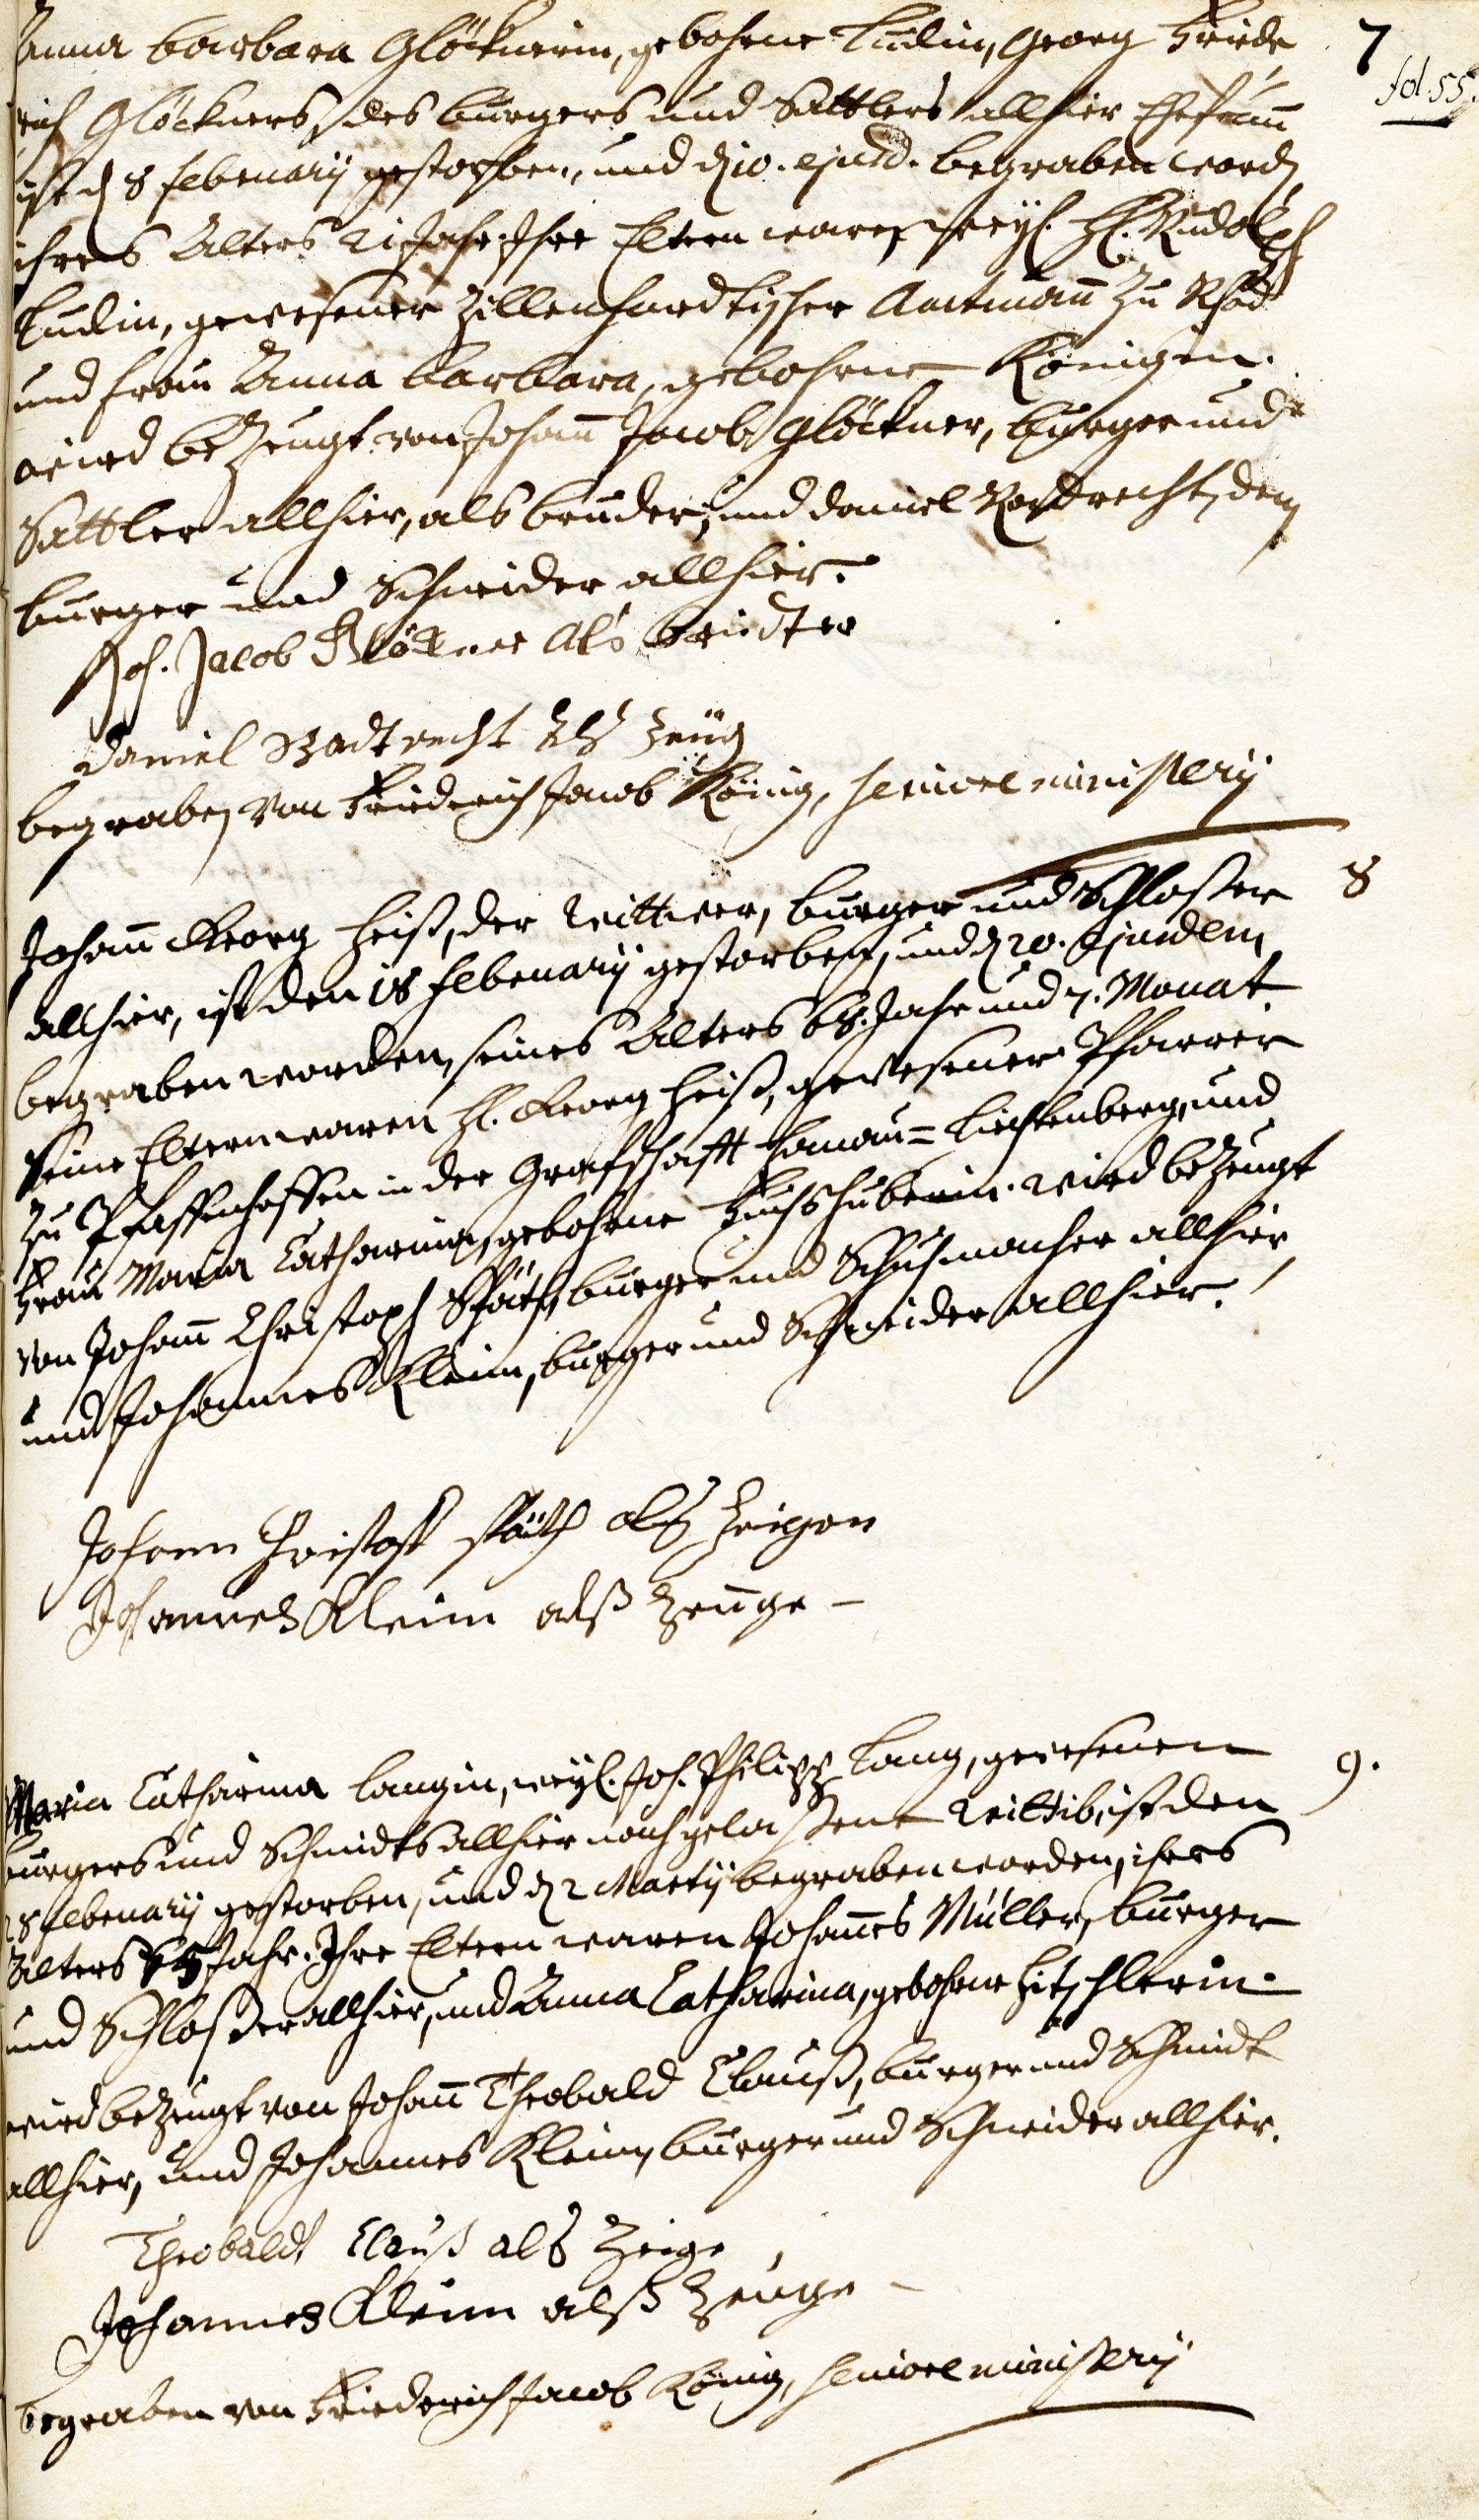 7
fol. 55.
Anna Barbara Glöcknerin, gebohrne Ludin, Georg Fride
rich Glöckners, des burgers und Sattlers allhier Ehefrau
ist d 8 februarÿ gestorben, und d 10. ejusd. begraben word
ihres Alters 21 Jahr. Ihre Eltern waren weyl. H. Rudolph
Ludin, gewesener Zillenhardtischer Amtmann zu
und frau Anna Barbara, gebohrne Königen.
wird bezeugt von Johann Jacob Glöckner, burger und
Sattler allhier, als bruder, und Daniel dem
burger und Schneider allhier.
Joh. Jacob Glöckner Als brudter
Daniel Als Zeüg
begraben von Friderich Jacob König, seniore ministerÿ
8
Johann Georg Heiß, der Wittwer, burger und Schlosser
allhier, ist den 18 februarÿ gestorben, und d 20. ejusdem
begraben worden, seines Alters 68. Jahr und 7. Monat.
Seine Eltern waren H. Georg Heiß, gewesener Pfarrer
zu Pfaffenhoffen in der Grafschafft Hanau=Liechtenberg, und
Frau Maria Catharina, gebohrne wird bezeugt
von Johann Christoph Späth, burger und Schuhmacher allhier,
und Johannes Kleim, burger und Schneider allhier.
Johann Christoff Späth als Zeigen
Johannes Kleim alß Zeuge
9.
Maria Catharina Langin, weyl. Joh. Philipp Lang, gewesenen
burgers und Schmidts allhier nachgelaßene Wittib, ist den
28 februarÿ gestorben, und d 2 Martÿ begraben worden, ihres
Alters Jahr. Ihre Eltern waren Johannes Müller, burger
und Schlosser allhier, und Anna Catharina, gebohrne Hitschlerin.
wird bezeugt von Johann Theobald Clauß, burger und Schmidt
allhier, und Johannes Kleim, burger und Schneider allhier.
Theobaldt Clauß als Zeige
Johannes Kleim alß Zeuge
begraben von Friderich Jacob König, seniore ministerÿ